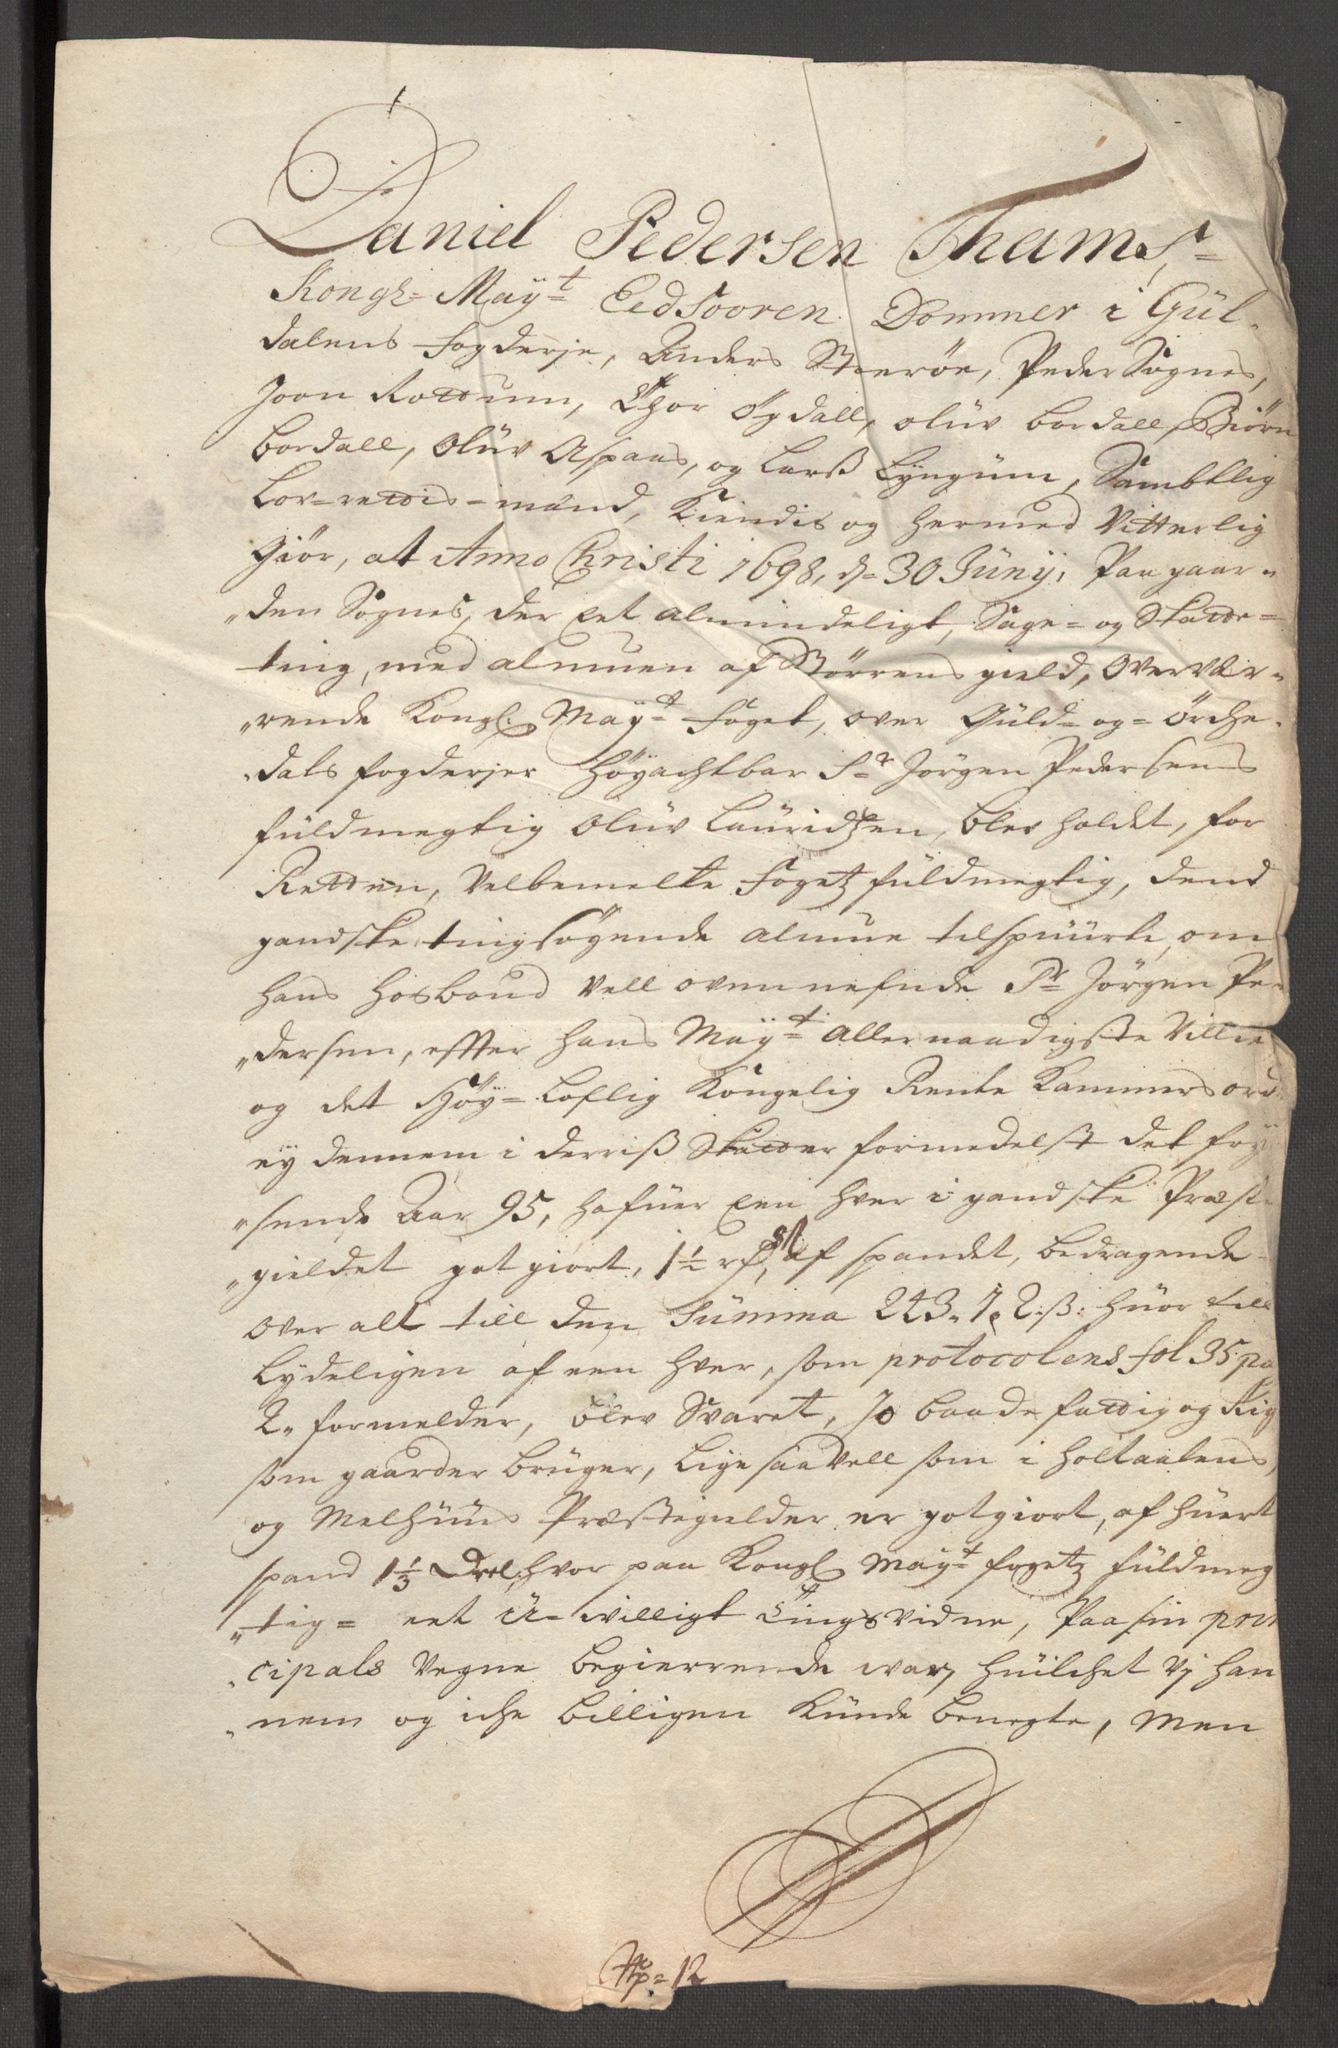 Daniel Pedersen Thams,
Kongl: Mayt Eedsooren Dommer i Gül-
dalens fogderje, Anders Steeröe, Peder Sognes,
Joon Rottum, Thor Øgdall, olüv bordall, Biörn
bordall, olüv Aspaas, og Larss Lÿngüm, Sambtlig
Lov-rettis-mænd, Kiendis og hermed Vitterlig
Giör, at Anno Christi 1698, d= 30 Jüny, Paa gaar-
den Sognes, der Eet almindeligt, Sage- og Skatte-
ting, med almuen af Størrens gield, overvær-
rende Kongl. Maÿt foget, over Güld- og- örche-
dals fogderjer Höyachtbar Sr Jörgen Pedersens
füldmegtig olüv Lauridtzen, blev holdet, for
Retten, Velbemelte fogetz füldmegtig, dend
gandske tingsögende almue tilspuurte, om
hans Hosbond Vell ovennefnde Sr Jörgen Pe-
dersen, effter hans Maÿt allernaadigste Villie
og det Höÿ-Loflig Kongelig Rente Kammers ord
eÿ dennem i derriss Skatter formedelst det frÿ
sende Aar 95, hafüer Een hver i gandske Præste
gieldet got giort, 1½ rd, af spandet, bedragende
over alt till den Summa 243. 1. 2 ss: huor till
Lydeligen af een hver, som protocolens fol 35 pa
2. formelder, blev Svaret, Jo baade fattig og Rig
som gaarder brüger, Lige saavell som i Holtaalens,
og Melhuus Præstegielder er got giort, af huert
spand 1⅓ Drl. hvor paa Kongl Maÿt fogetz füldmeg
tig= eet ü-villigt Tingsvidne, Paa sin prin
cipals Vegne begierrende var, huilchet Vj han
nem og iche billigen Künde benegte, Men
No= 12